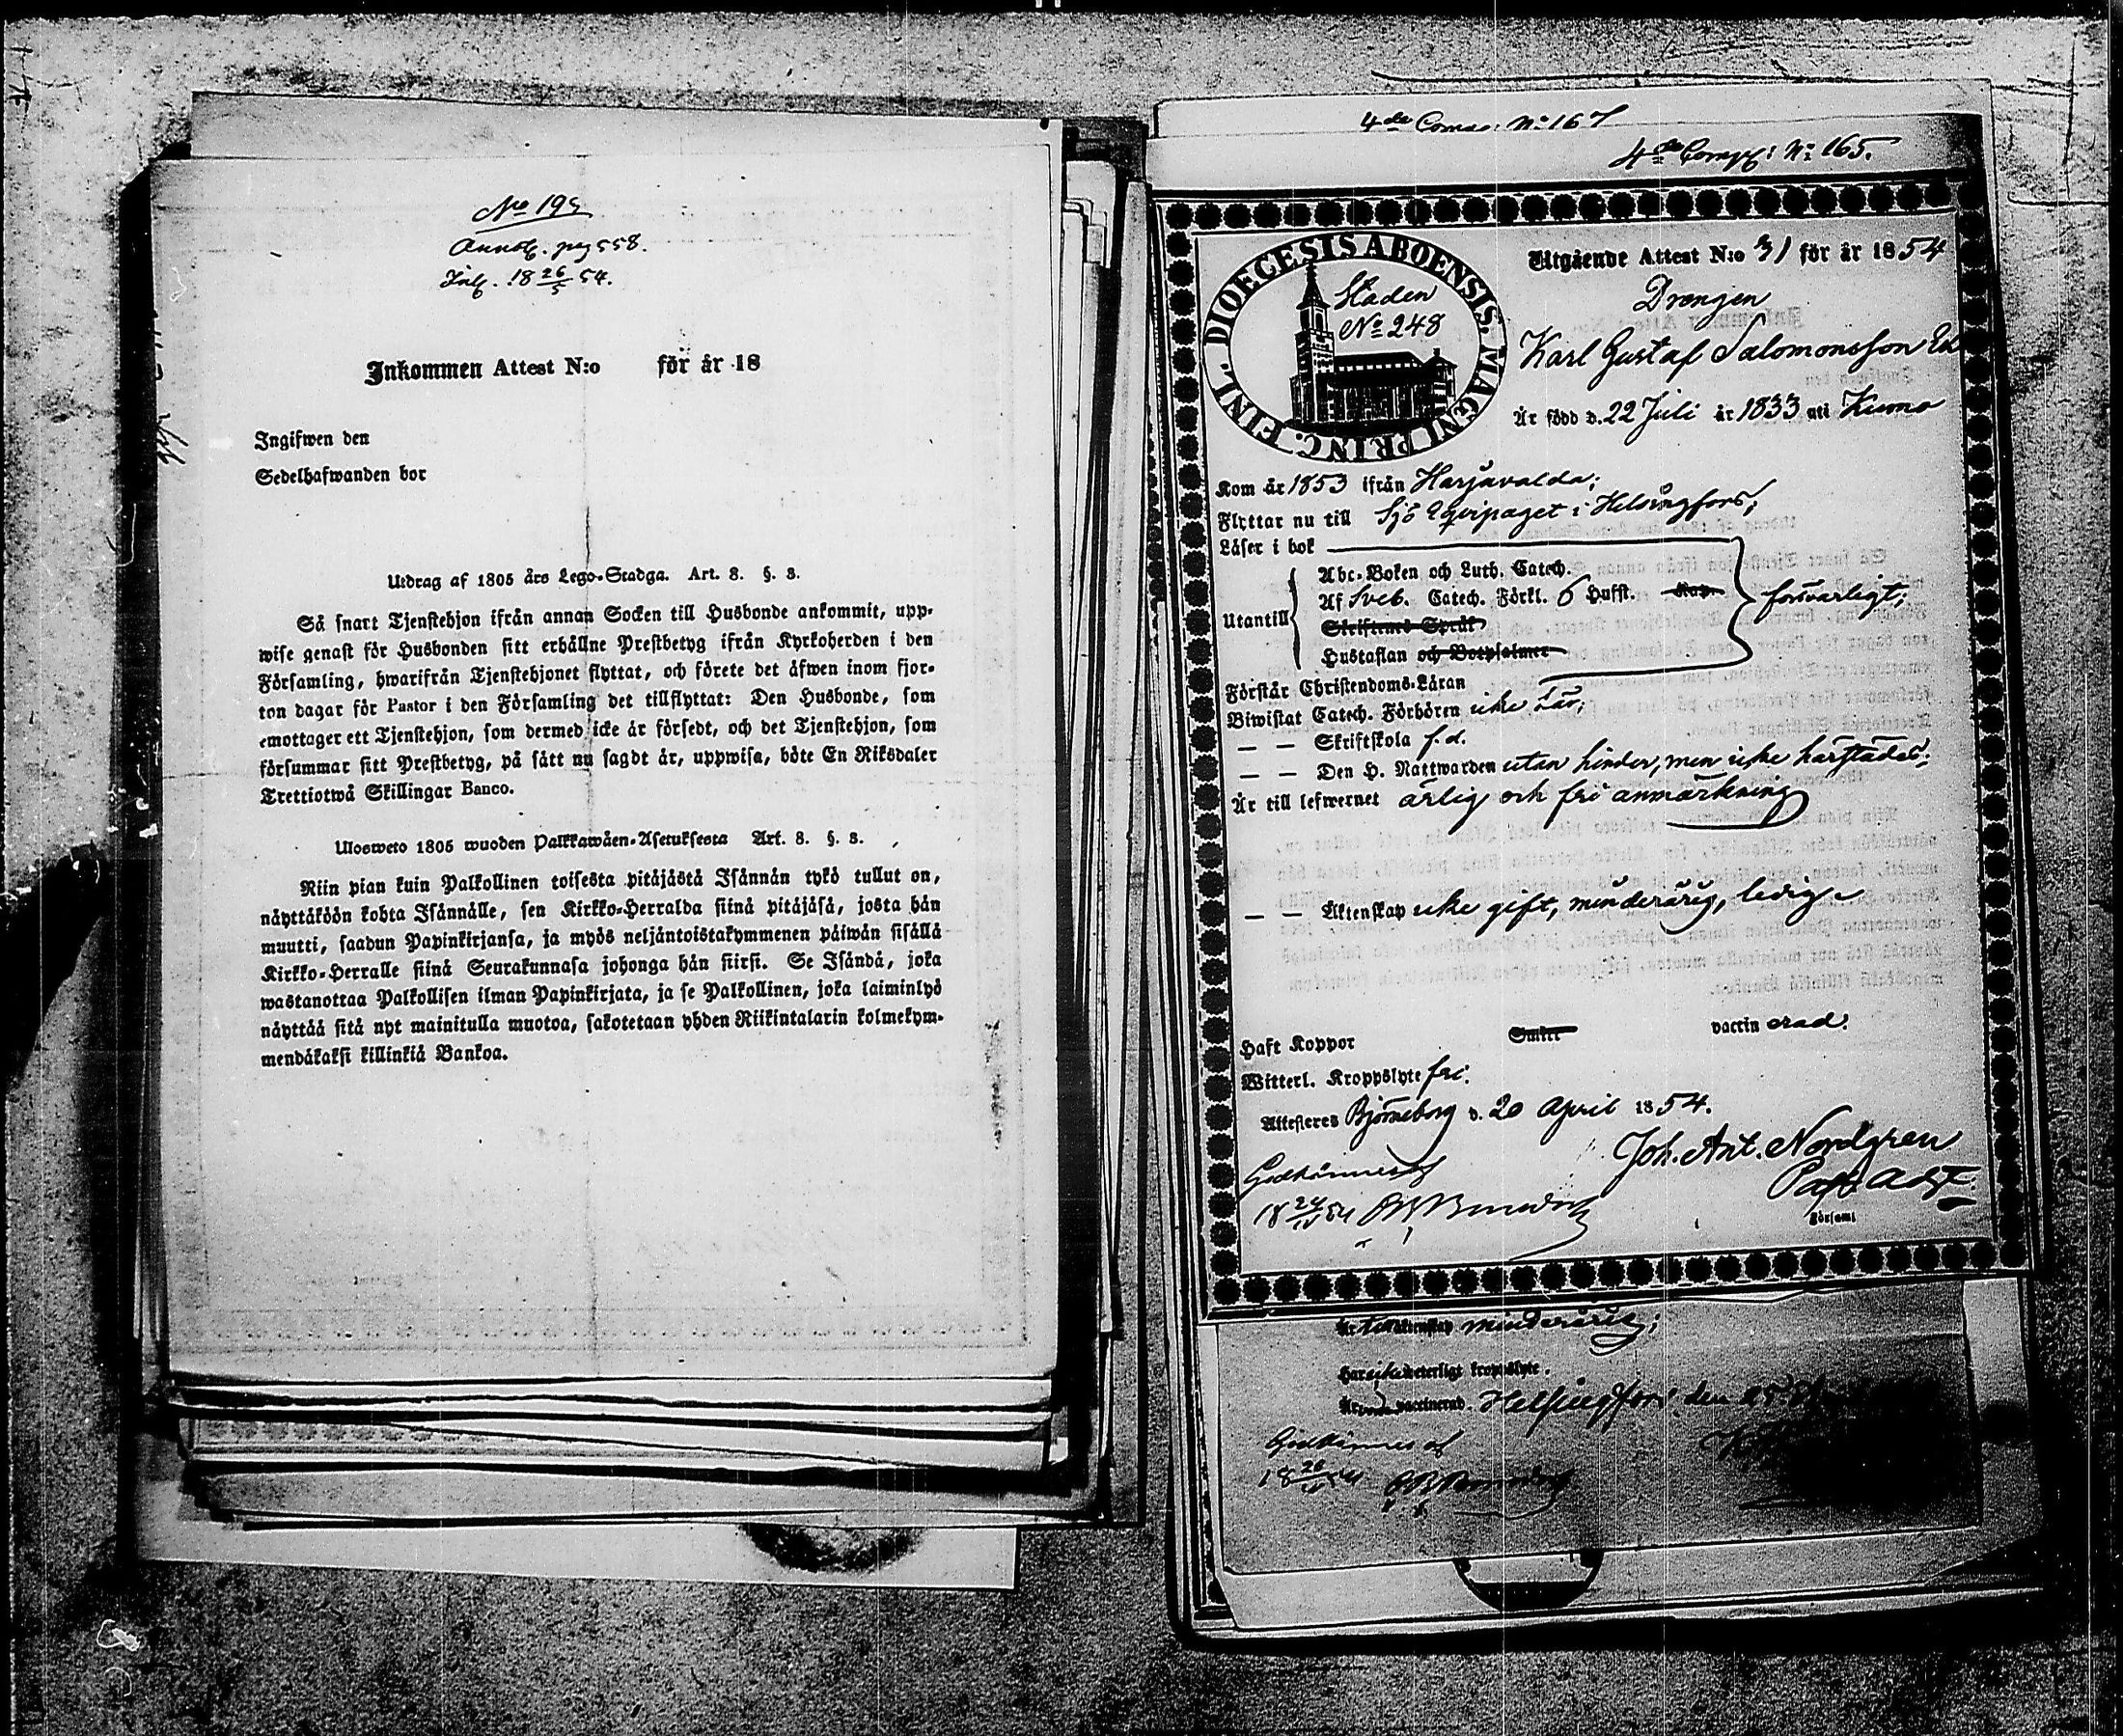 No 195
Annot. pag 558.
Inl. 18 26/5 54.
Inkommen Attest N:o för år 18
Ingifwen den
Sedelhafwanden bor
Utdrag af 1805 års Lego-Stadga. Art. 8. §. 3.
Så snart Tjenstehjon ifrån annan Socken till Husbonde ankommit, upp-
wise genast för Husbonden sitt erhållne Prestbetyg ifrån Kyrkoherden i den
Församling, hwarifrån Tjenstehjonet flyttat, och förete det åfwen inom fjor-
ton dagar för Pastor i den Församling det tillflyttat: Den Husbonde, som
emottager ett Tjenstehjon, som dermed icke är försedt, och det Tjenstehjon, som
försummar sitt Prestbetyg, på sätt nu sagdt är, uppwisa, böte En Riksdaler
Trettiotwå Skillingar Banco.
Ulosweto 1805 wuoden Palkkawäen-Asetuksesta Art. 8. §. 3.
Niin pian kuin Palkollinen toisesta pitäjästä Isännän tykö tullut on,
näyttäköön kohta Isännälle, sen Kirkko-Herralda siinä pitäjäsä, josta hän
muutti, saadun Papinkirjansa, ja myös neljäntoistakymmenen päiwän sisällä
Kirkko-Herralle siinä Seurakunnasa johonga hän siirsi. Se Isändä, joka
wastanottaa Palkollisen ilman Papinkirjata, ja se Palkollinen, joka laiminlyö
näyttää sitä nyt mainitulla muotoa, sakotetaan yhden Riikintalarin kolmekym-
mendäkaksi killinkiä Bankoa.
4de Comp: No 167
4de Comp: No 165.
DIOECESIS ABOENSIS. MAGNI PRINC. FINL.
Staden
No 248
Utgående Attest N:o 31 för år 1854
Drengen
Karl Gustaf Salomonsson Ek
Är född d. 22 Juli år 1833 uti Kumo
Kom år 1853 ifrån Harjavalda;
Flyttar nu till Sjö Equipaget i Helsingfors;
Läser i bok
Abc-Boken och Luth. Catech.
Utantill Af Sveb. Catech. Förkl. 6 Hufst. Kap. försvarligt;
Skriftenes Språk
Hustaflan och Botpsalmer
Förstår Christendoms-Läran
Biwistat Catech. Förhören icke här;
— — Skriftskola f.d.
— — Den H. Nattwarden utan hinder, men icke härstädes:
Är till lefwernet ärlig och fri anmärkning
— — Äktenskap icke gift, minderårig, ledig
Haft Koppor Smitt vaccinerad.
Witterl. Kroppslyte fri.
Attesteres Björneborg d. 20 April 1854.
Joh. Ant. Nordgren
Past. Adj.
Församl
Godkännes af
18 24/IV 54
Är till äktenskap minderårig;
Har icke veterligt kroppslyte.
Är vaccinerad. Helsingfors den 25
Godkännes af
18 26/IV 54